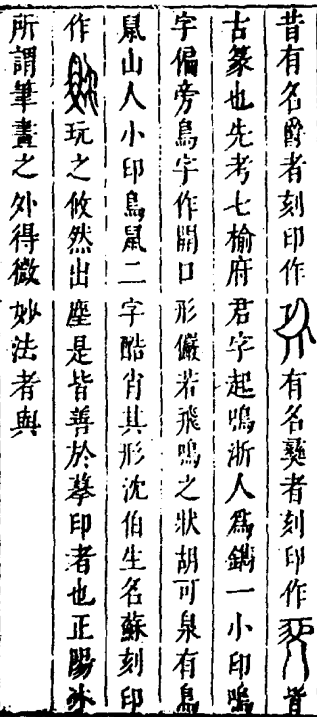 昔有名爵者刻印作有名彝者刻印作皆
古篆也先考七榆府君字起鳴浙人爲鐫一小印鳴
字偏旁鳥字作開口形儼若飛鳴之狀胡可泉有鳥
鼠山人小印鳥鼠二字酷肖其形沈伯生名蘇刻印
作玩之攸然出塵是皆善於摹印者也正陽
所謂筆畫之外得微妙法者與